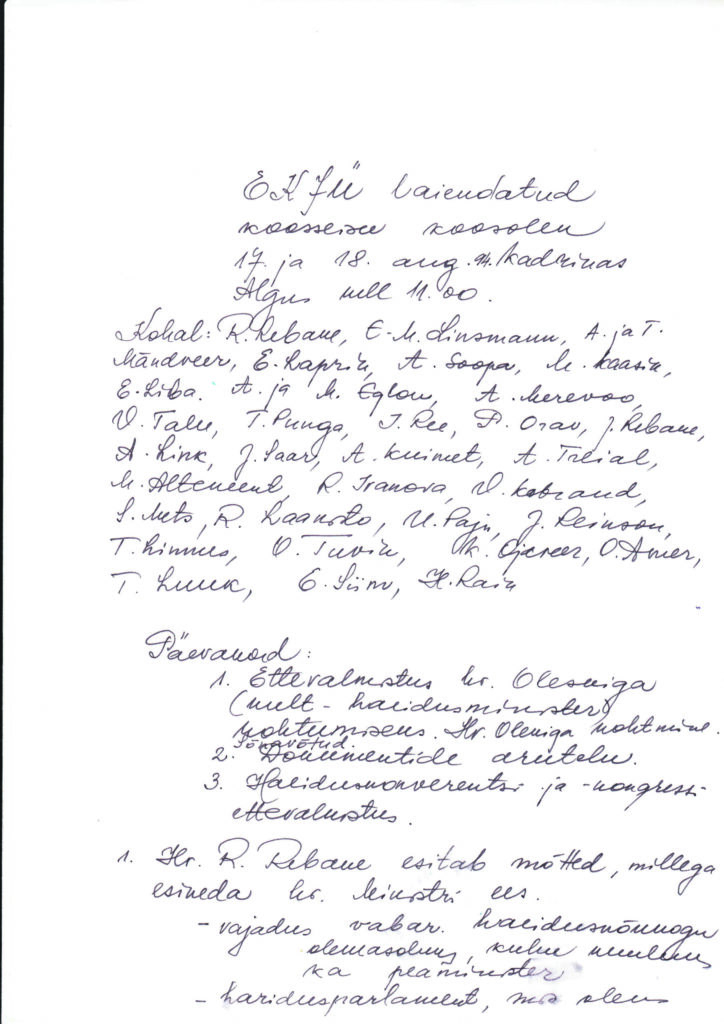 EKJÜ laiendatud
koosseisu koosolek
17. ja 18. aug. 94. Kadrinas
Algus kell 11.00.
Kohal: R. Rebane, E-M. Linsmann, A. ja T.
Mändveer, E. Kaprik, A. Soopa, M. Kaasik,
E. Liba. A. ja M. Eglon, A. Merevoo,
V. Talu, T. Punga, T. Ree, P. Orav, J. Rebane,
A. Link, J. Saar, A. Kuimet, A. Treial,
M. R. Ivanova, V.
S. Mets, R. U. Paju, J. Reinson,
T. Linnus, O. M. Ojaveer, O. Amer,
T. Luuk, E. Siirv, H. Rain
Päevakord:
1. Ettevalmistus hr. Oleskiga
(kult-haridusminister)
kohtumiseks. Hr. Oleskiga kohtmine.
Sõnavõtud.
2. Dokumentide arutelu.
3. Hariduskonverentsi ja -kongressi
ettevalmistus.
1. Hr. R. Rebane esitab mõtted, millega
esineda hr. Ministri ees.
- vajadus vabar. haridusnõukogu
olemasoluks, kuhu kuuluks
ka peaminister
- haridusparlament, mis oleks